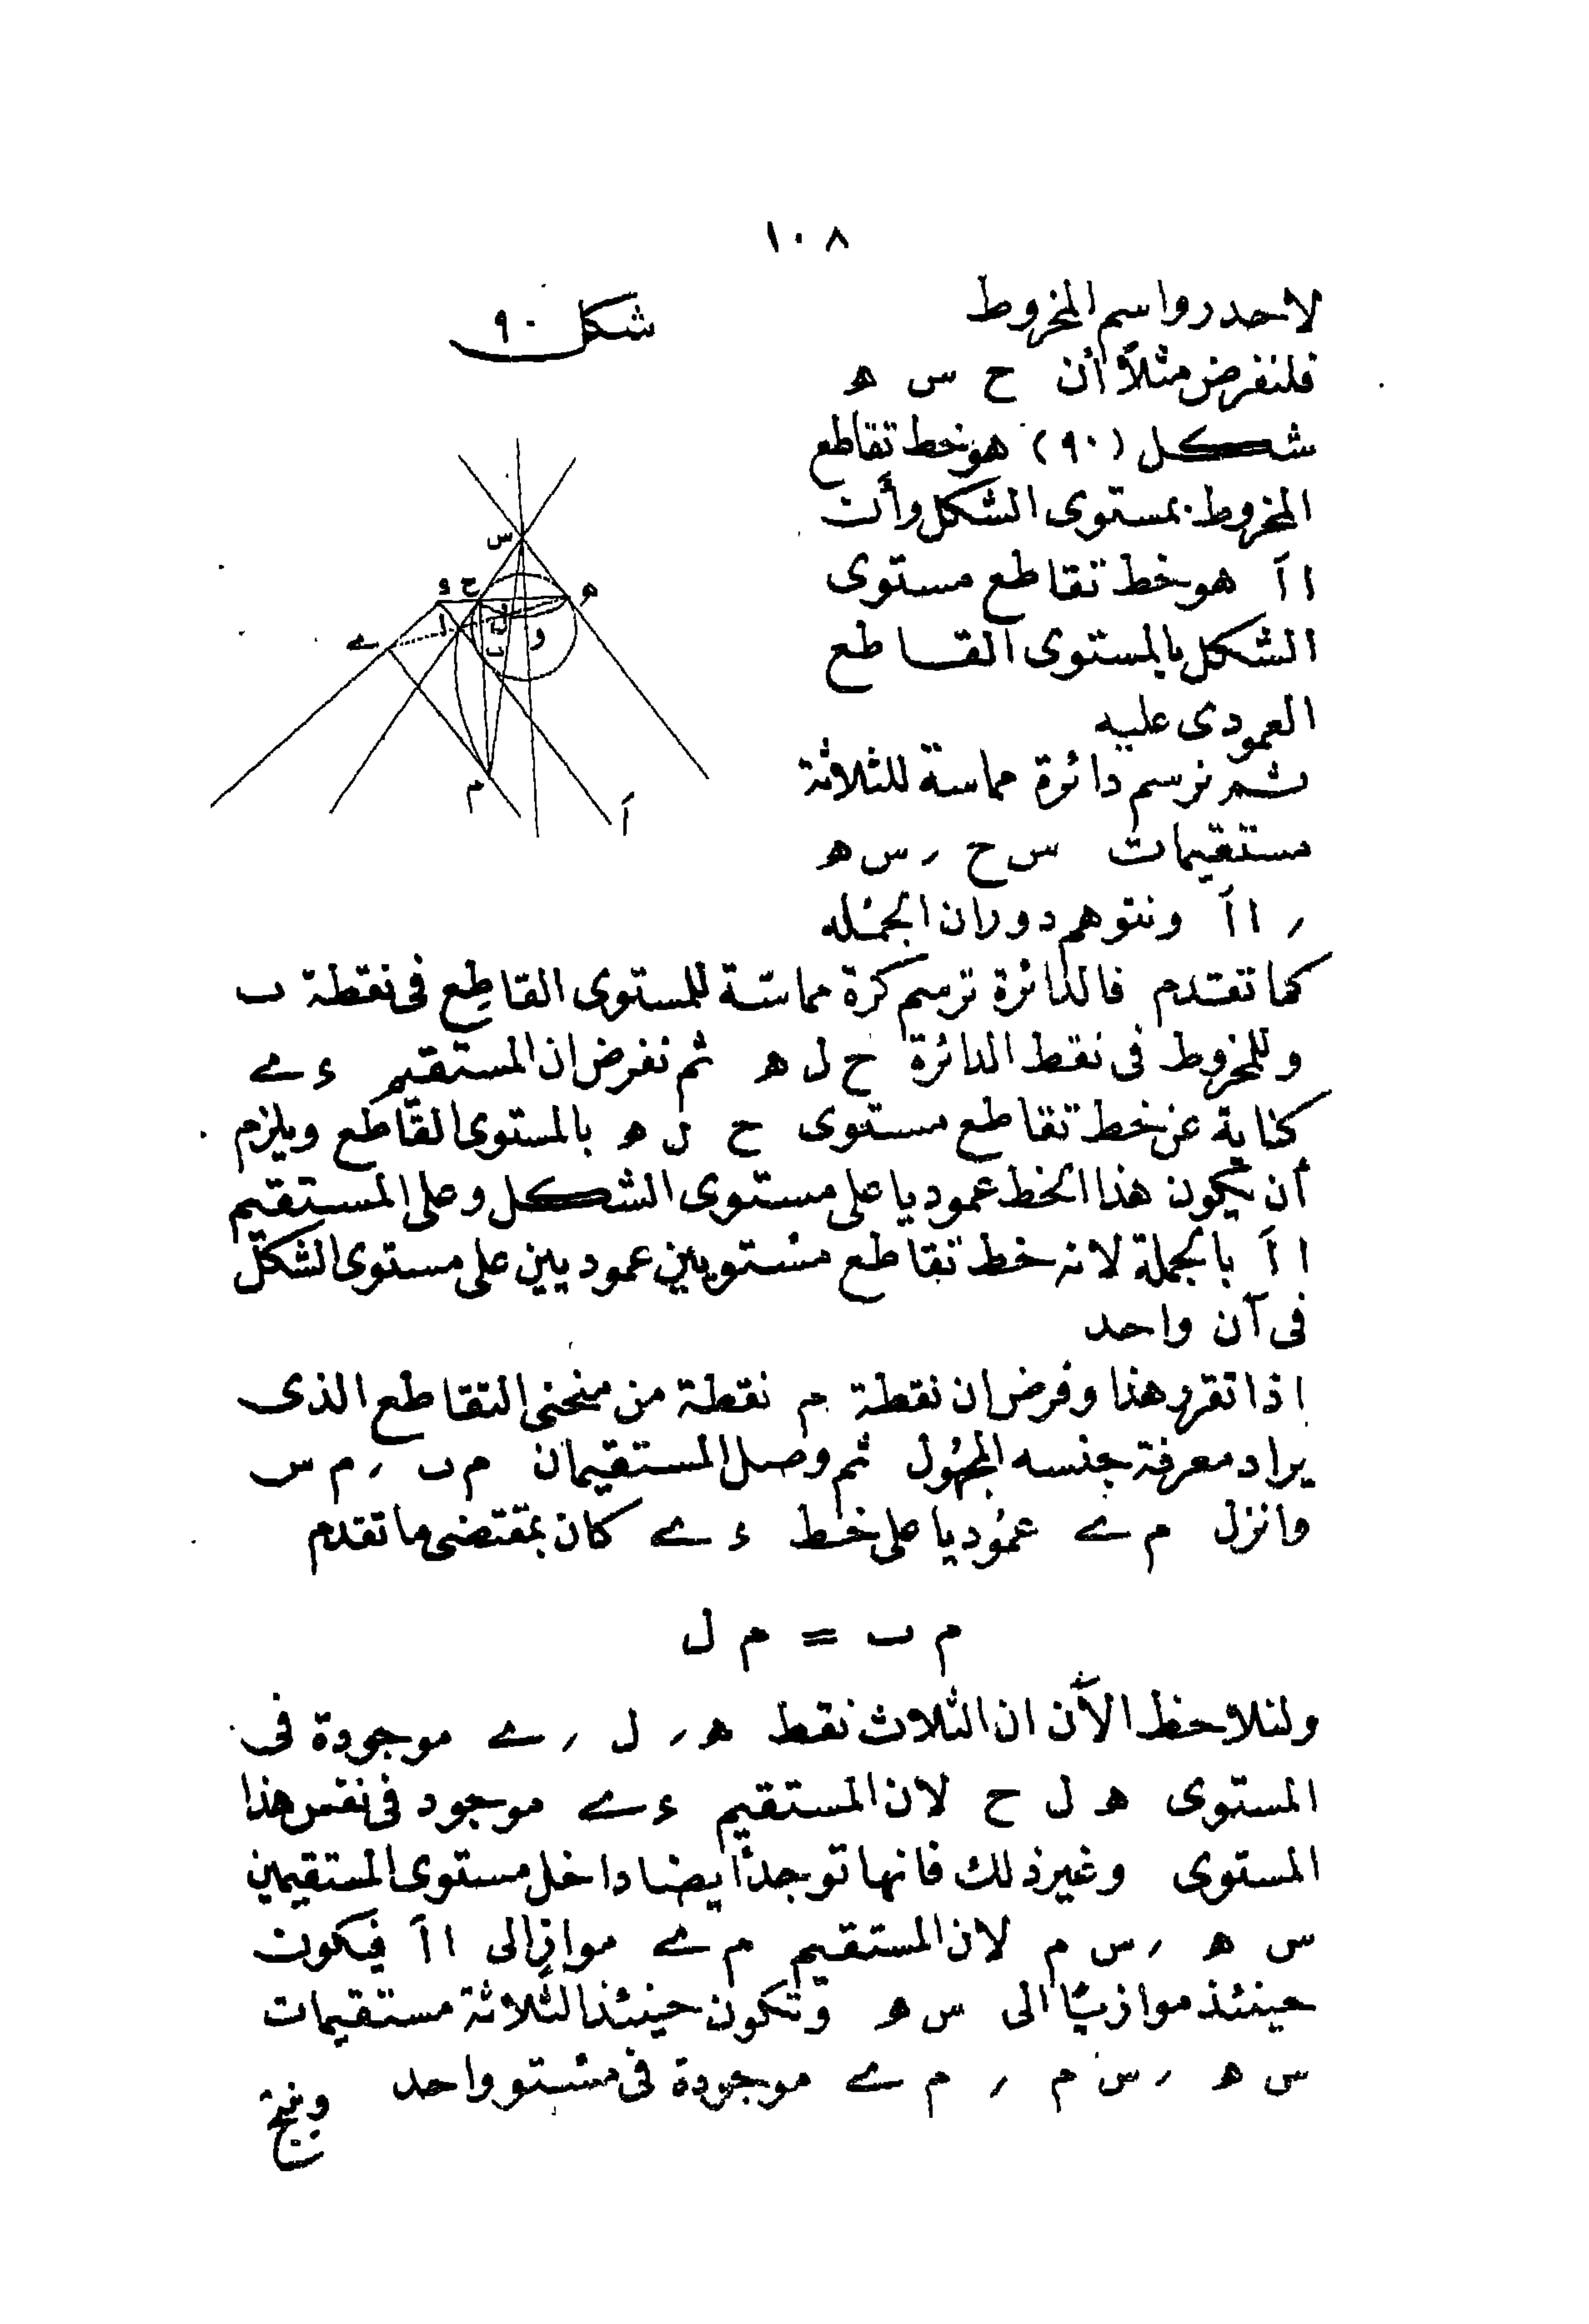 ١٠٨
لاحدرواسم المخروط
شكل ٩٠
فلنفرض مثلاً أن ح س ه
شكل (٩٠) هو خط تقاطع
المخروط بمستوى الشكل وأن
ااَ هو خط تقاطع مستوى
الشكل بالمستوى القاطع
العمودى عليه
ثم نرسم دائرة مماسة للثلاثة
مستقيمات س ح ر س ه
ر ااَ ونتوهم دوران الجمله
س
ء ح ه
ا ل و
ے ب
م اَ
كما تقدم فالدائرة ترسم كرة مماسّة للمستوى القاطع فى نقطة ب
وللمخروط فى نقط الدائرة ح ل ه ثم نفرض ان المستقيم ء ے
كناية عن خط تقاطع مستوى ح ل ه بالمستوى القاطع ويلزم
أن يكون هذا الخط عموديا على مستوى الشكل وعلى المستقيم
ااَ بالجملة لانه خط تقاطع مستويين عموديين على مستوى الشكل
فى آن واحد
اذا تقرر هذا وفرض ان نقطة م نقطة من منحنى التقاطع الذى
يراد معرفة جنسه المجهُول ثم وصل المستقيمان م ب ر م س
وانزل م ے عمُوديا على خط ء ے كان بمقتضى ما تقدم
م ب = م ل
ولنلاحظ الآن ان الثلاث نقط ه ر ل ر ے موجودة فى
المستوى ه ل ح لان المستقيم ء ے موجود فى نفس هذا
المستوى وغير ذلك فانها توجد أيضا داخل مستوى المستقيمين
س ه ر س م لان المستقيم م ے موازٍ الى ااَ فيكون
حينئذ موازيًا الى س ه وتكون حينئذ الثلاثة مستقيمات
س ه ر س م ر م ے موجودة فى مستو واحد
وينتج